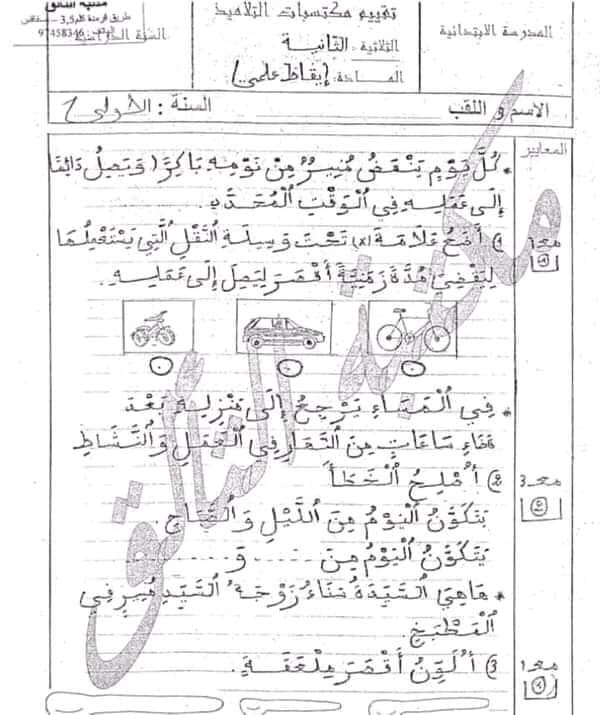 مكتبة التألق
طريق قرمدة كلم 3,5 - صفاقس
97458346
المدرسة الابتدائية
تقييم مكتسبات التلاميذ
الثلاثية: الثانية
المادة: إيقاظ علمي
الاسم و اللقب
السنة: الأولى
المعايير
• كُلَّ يَوْمٍ يَنْهَضُ مُنِيرٌ مِنْ نَوْمِهِ بَاكِرًا وَيَصِلُ دَائِمًا
إِلَى عَمَلِهِ فِي الْوَقْتِ الْمُحَدَّدِ.
مع 1
1) أَضَعُ عَلَامَةَ (x) تَحْتَ وَسِيلَةِ النَّقْلِ الَّتِي يَسْتَعْمِلُهَا
لِيَقْضِيَ مُدَّةً زَمَنِيَّةً أَقْصَرَ لِيَصِلَ إِلَى عَمَلِهِ.
• فِي الْمَسَاءِ يَرْجِعُ إِلَى مَنْزِلِهِ بَعْدَ
قَضَاءِ سَاعَاتٍ مِنَ النَّهَارِ فِي الْعَمَلِ وَالنَّشَاطِ
مع 3
2) أُصْلِحُ الْخَطَأَ
يَتَكَوَّنُ الْيَوْمُ مِنَ اللَّيْلِ وَالصَّبَاحِ.
يَتَكَوَّنُ الْيَوْمُ مِنَ ........ وَ ........
• هَاهِيَ السَّيِّدَةُ سَنَاءُ زَوْجَةُ السَّيِّدِ مُنِيرٍ فِي
الْمَطْبَخِ.
مع 1
3) أُلَوِّنُ أَقْصَرَ مِلْعَقَةٍ.
مكتبة التألق